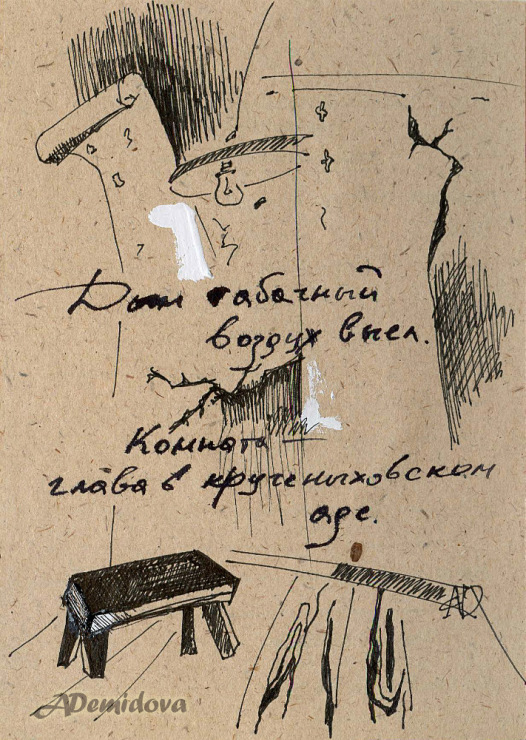 Дым табачный
воздух выел.
Комната —
глава в крученыховском
аде.
AD
ADemidova